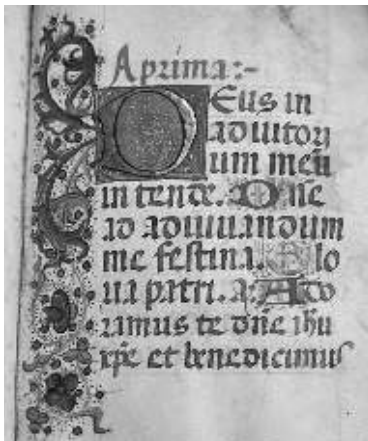 A prima:-
Deus in
adiutori
um meū
intende. Dñe
ad adiuuandum
me festina. Glo
ria patri. a. Ado
ramus te dñe ihu
xpe et benedicimus